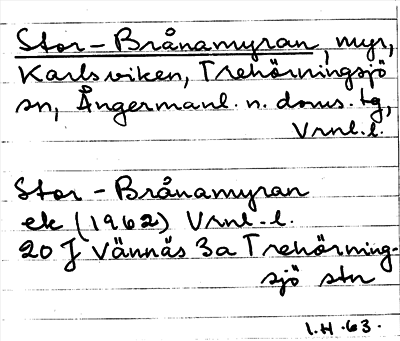 Stor-Brånamyran, myr,
Karlsviken, Trehörningsjö
sn, Ångermanl. n. doms. tg,
Vrnl.l.
Stor-Brånamyran
ek (1962) Vrnl.l.
20 J Vännäs 3a Trehörning-
sjö stn
I.H.63.